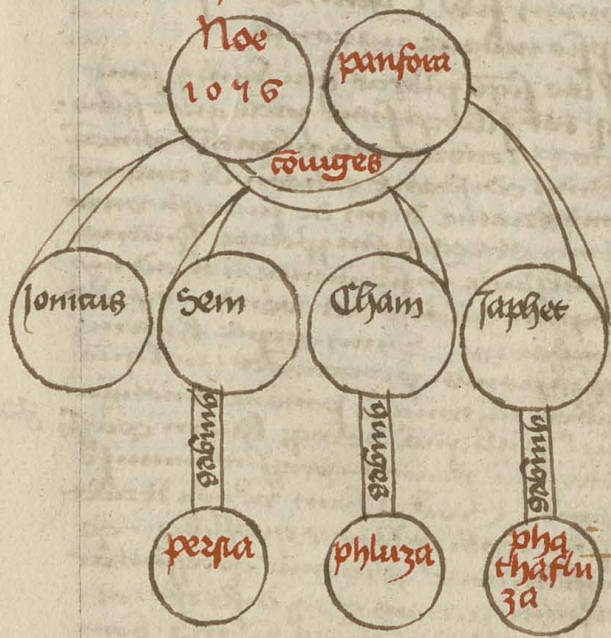 Noe
1056
panfora
cōiuges
Ionicus
Sem
Cham
Japhet
ↄiuges
ↄiuges
ↄiuges
persia
phluza
pha
thaflu
za